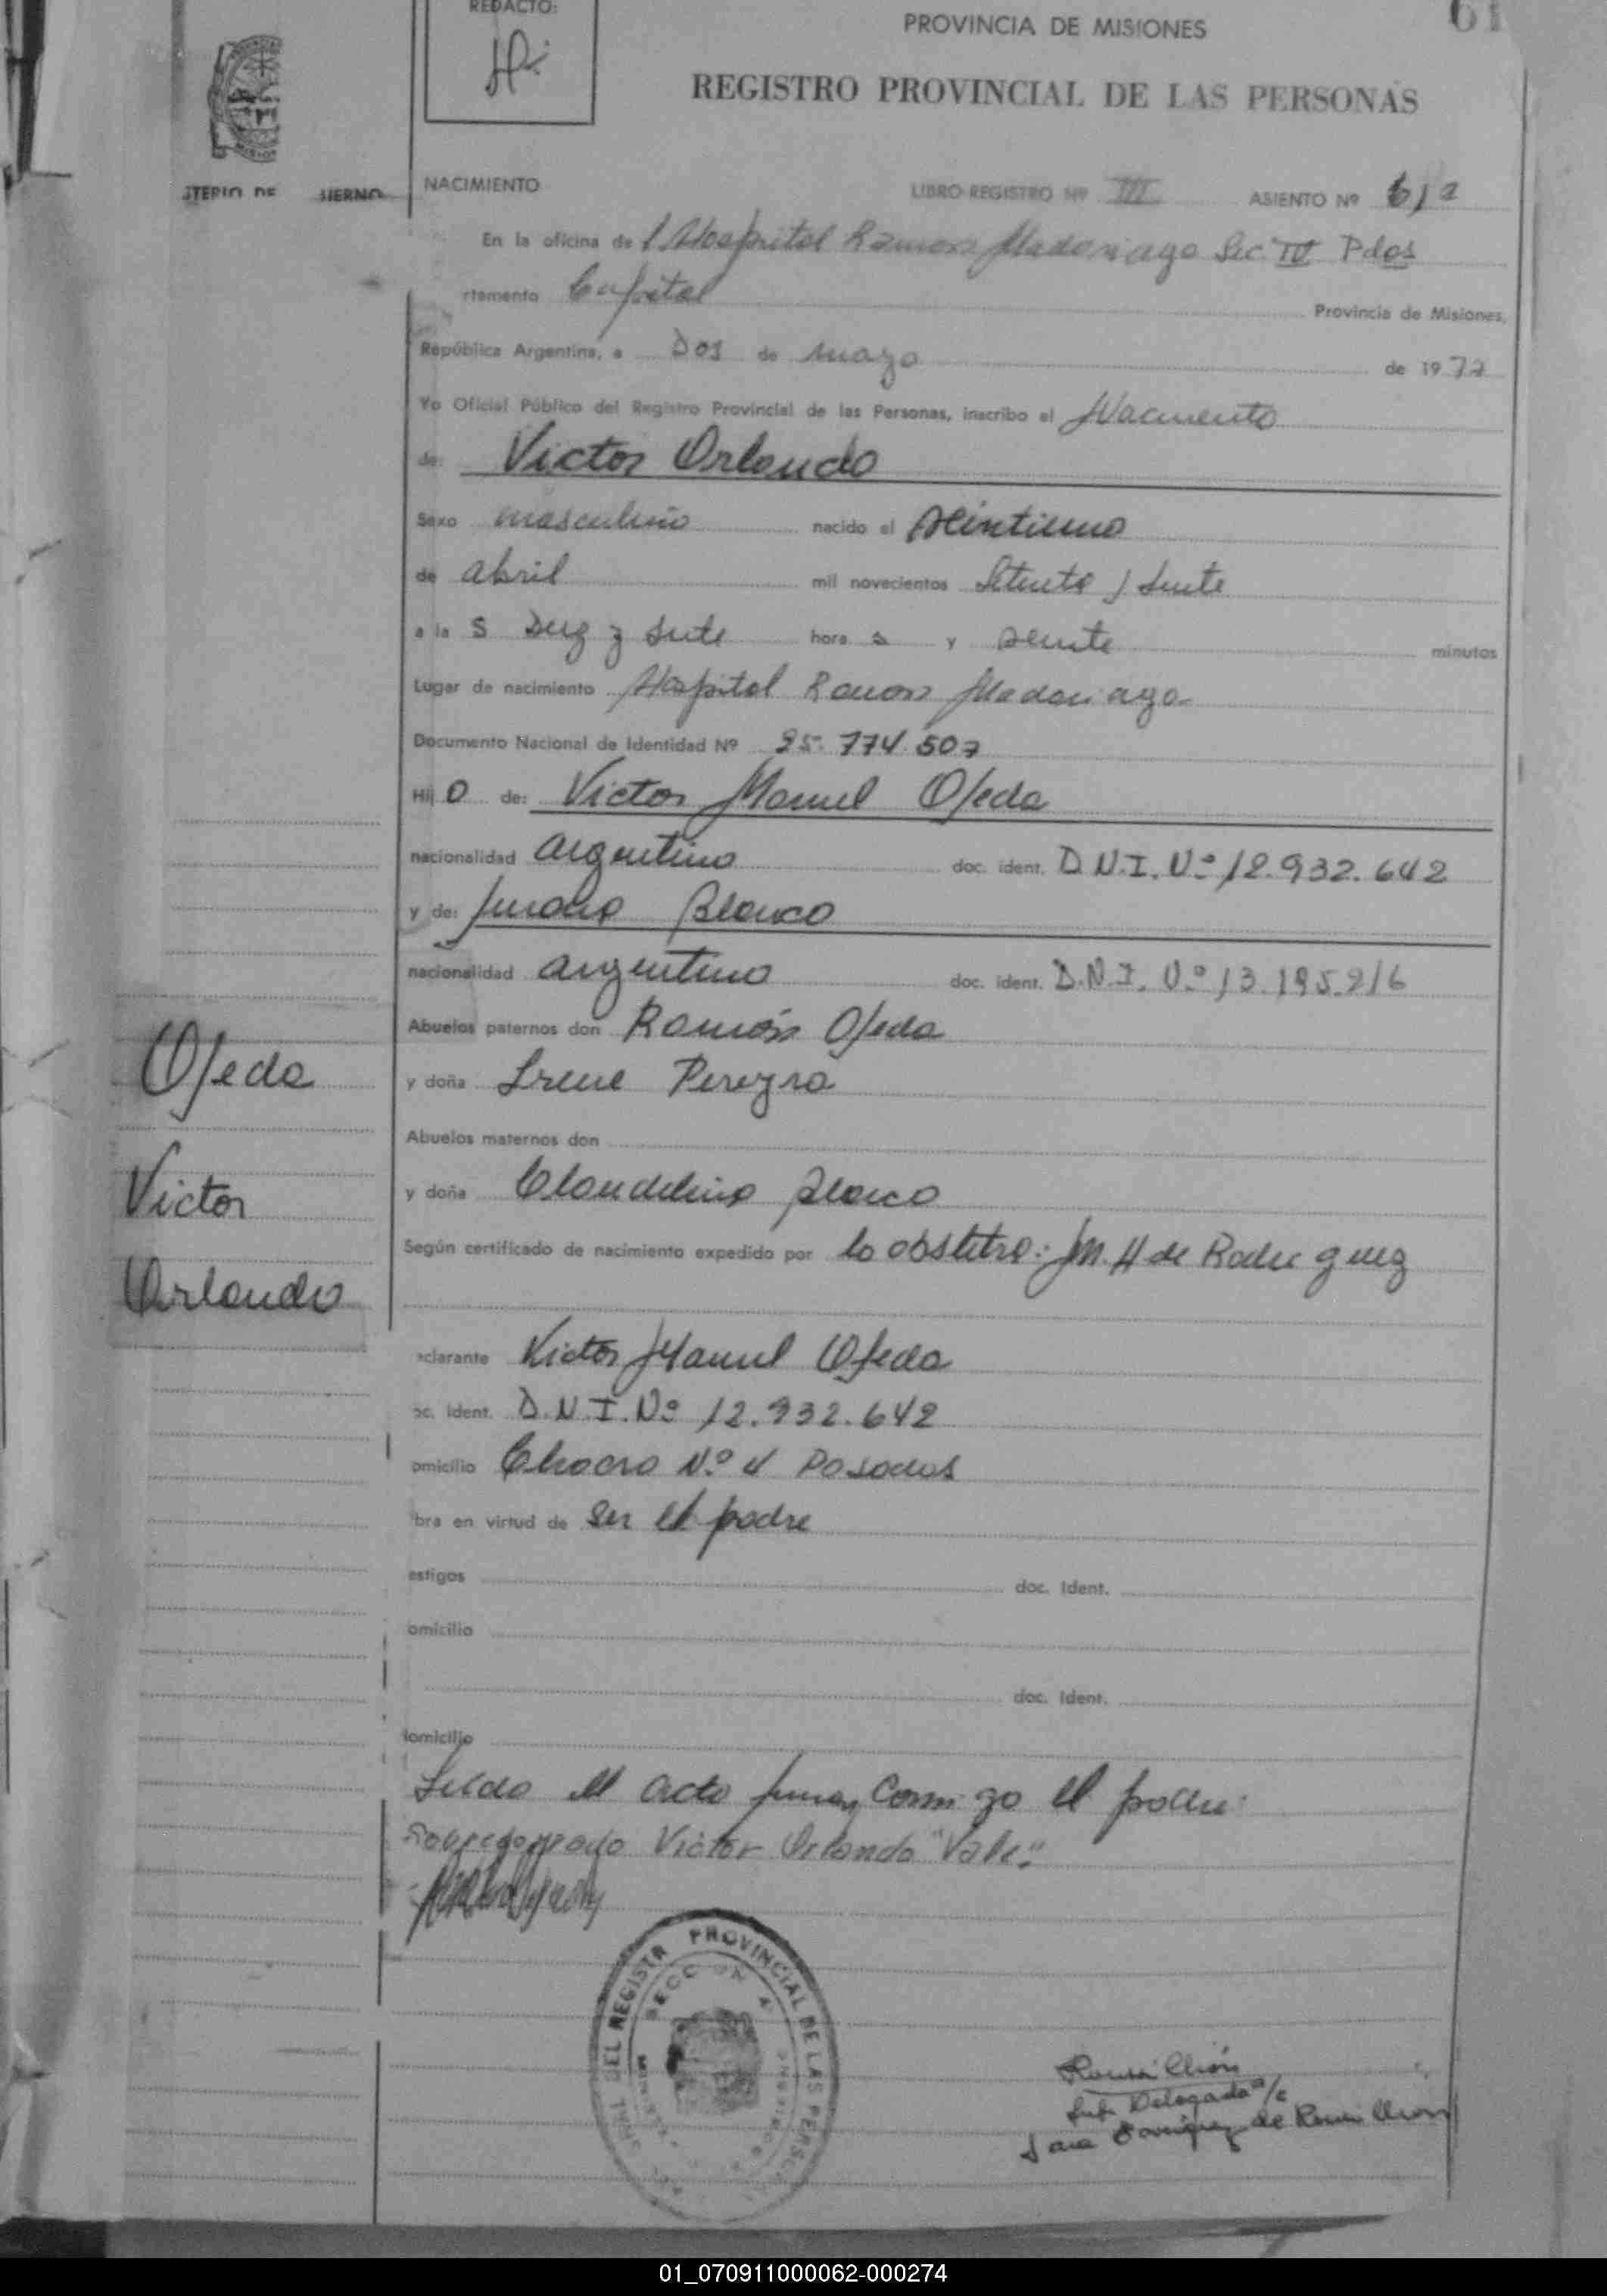 REDACTO:
PROVINCIA DE MISIONES
61
REGISTRO PROVINCIAL DE LAS PERSONAS
STERIO DE IERNO
NACIMIENTO LIBRO REGISTRO Nº III ASIENTO Nº 612
En la oficina de l Hospital Ramon Madariaga Sec. IV Pdas
rtamento Capital Provincia de Misiones,
República Argentina, a Dos de mayo de 1977
Yo Oficial Público del Registro Provincial de las Personas, inscribo el Nacimiento
de: Victor Orlando
Sexo masculino nacido el veintiuno
de abril mil novecientos setenta y siete
a la s diez y siete hora s y veinte minutos
Lugar de nacimiento Hospital Ramon Madariaga
Documento Nacional de Identidad Nº 25.774.507
Hij o de: Victor Manuel Ojeda
nacionalidad argentino doc. ident. D.N.I. Nº 12.932.642
y de: Blanco
nacionalidad argentina doc. ident. D.N.I. Nº 13.195.216
Abuelos paternos don Ramón Ojeda
y doña Irene Pereyra
Ojeda
Abuelos maternos don
y doña Claudelina Blanco
Victor
Según certificado de nacimiento expedido por la obstetra: M. H de Rodriguez
Orlando
eclarante Victor Manuel Ojeda
oc. Ident. D.N.I. Nº 12.932.642
omicilio Chacra Nº 4 Posadas
bra en virtud de ser el padre
estigos doc. Ident.
omicilio
doc. Ident.
domicilio
Leida el acta firma conmigo el padre:
Sobreborrado Victor Orlando "Vale"
REGISTR PROVINCIAL DE LAS PERSO
SECC
Rousillion
Sub Delegada a/c
Sara de Rousillion
01_070911000062-000274